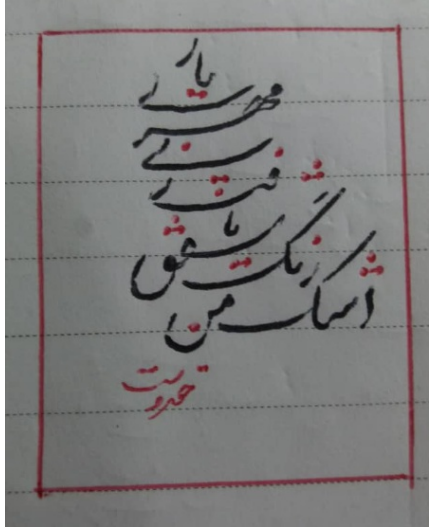 اشک من
رنگ شفق
یافت ز
بی
مهری
یار